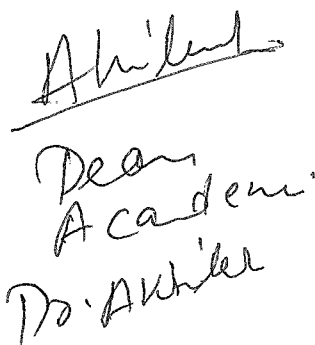 Akhilesh
Dean
Academi
Dr. Akhilesh